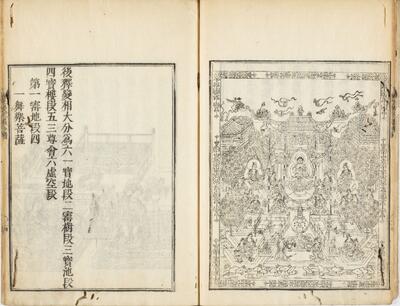 後釋變相大分爲六一寶地段二寶樹段三寶池段
四寶樓段五三尊會六虛空段
第一寶地段四
一舞樂菩薩